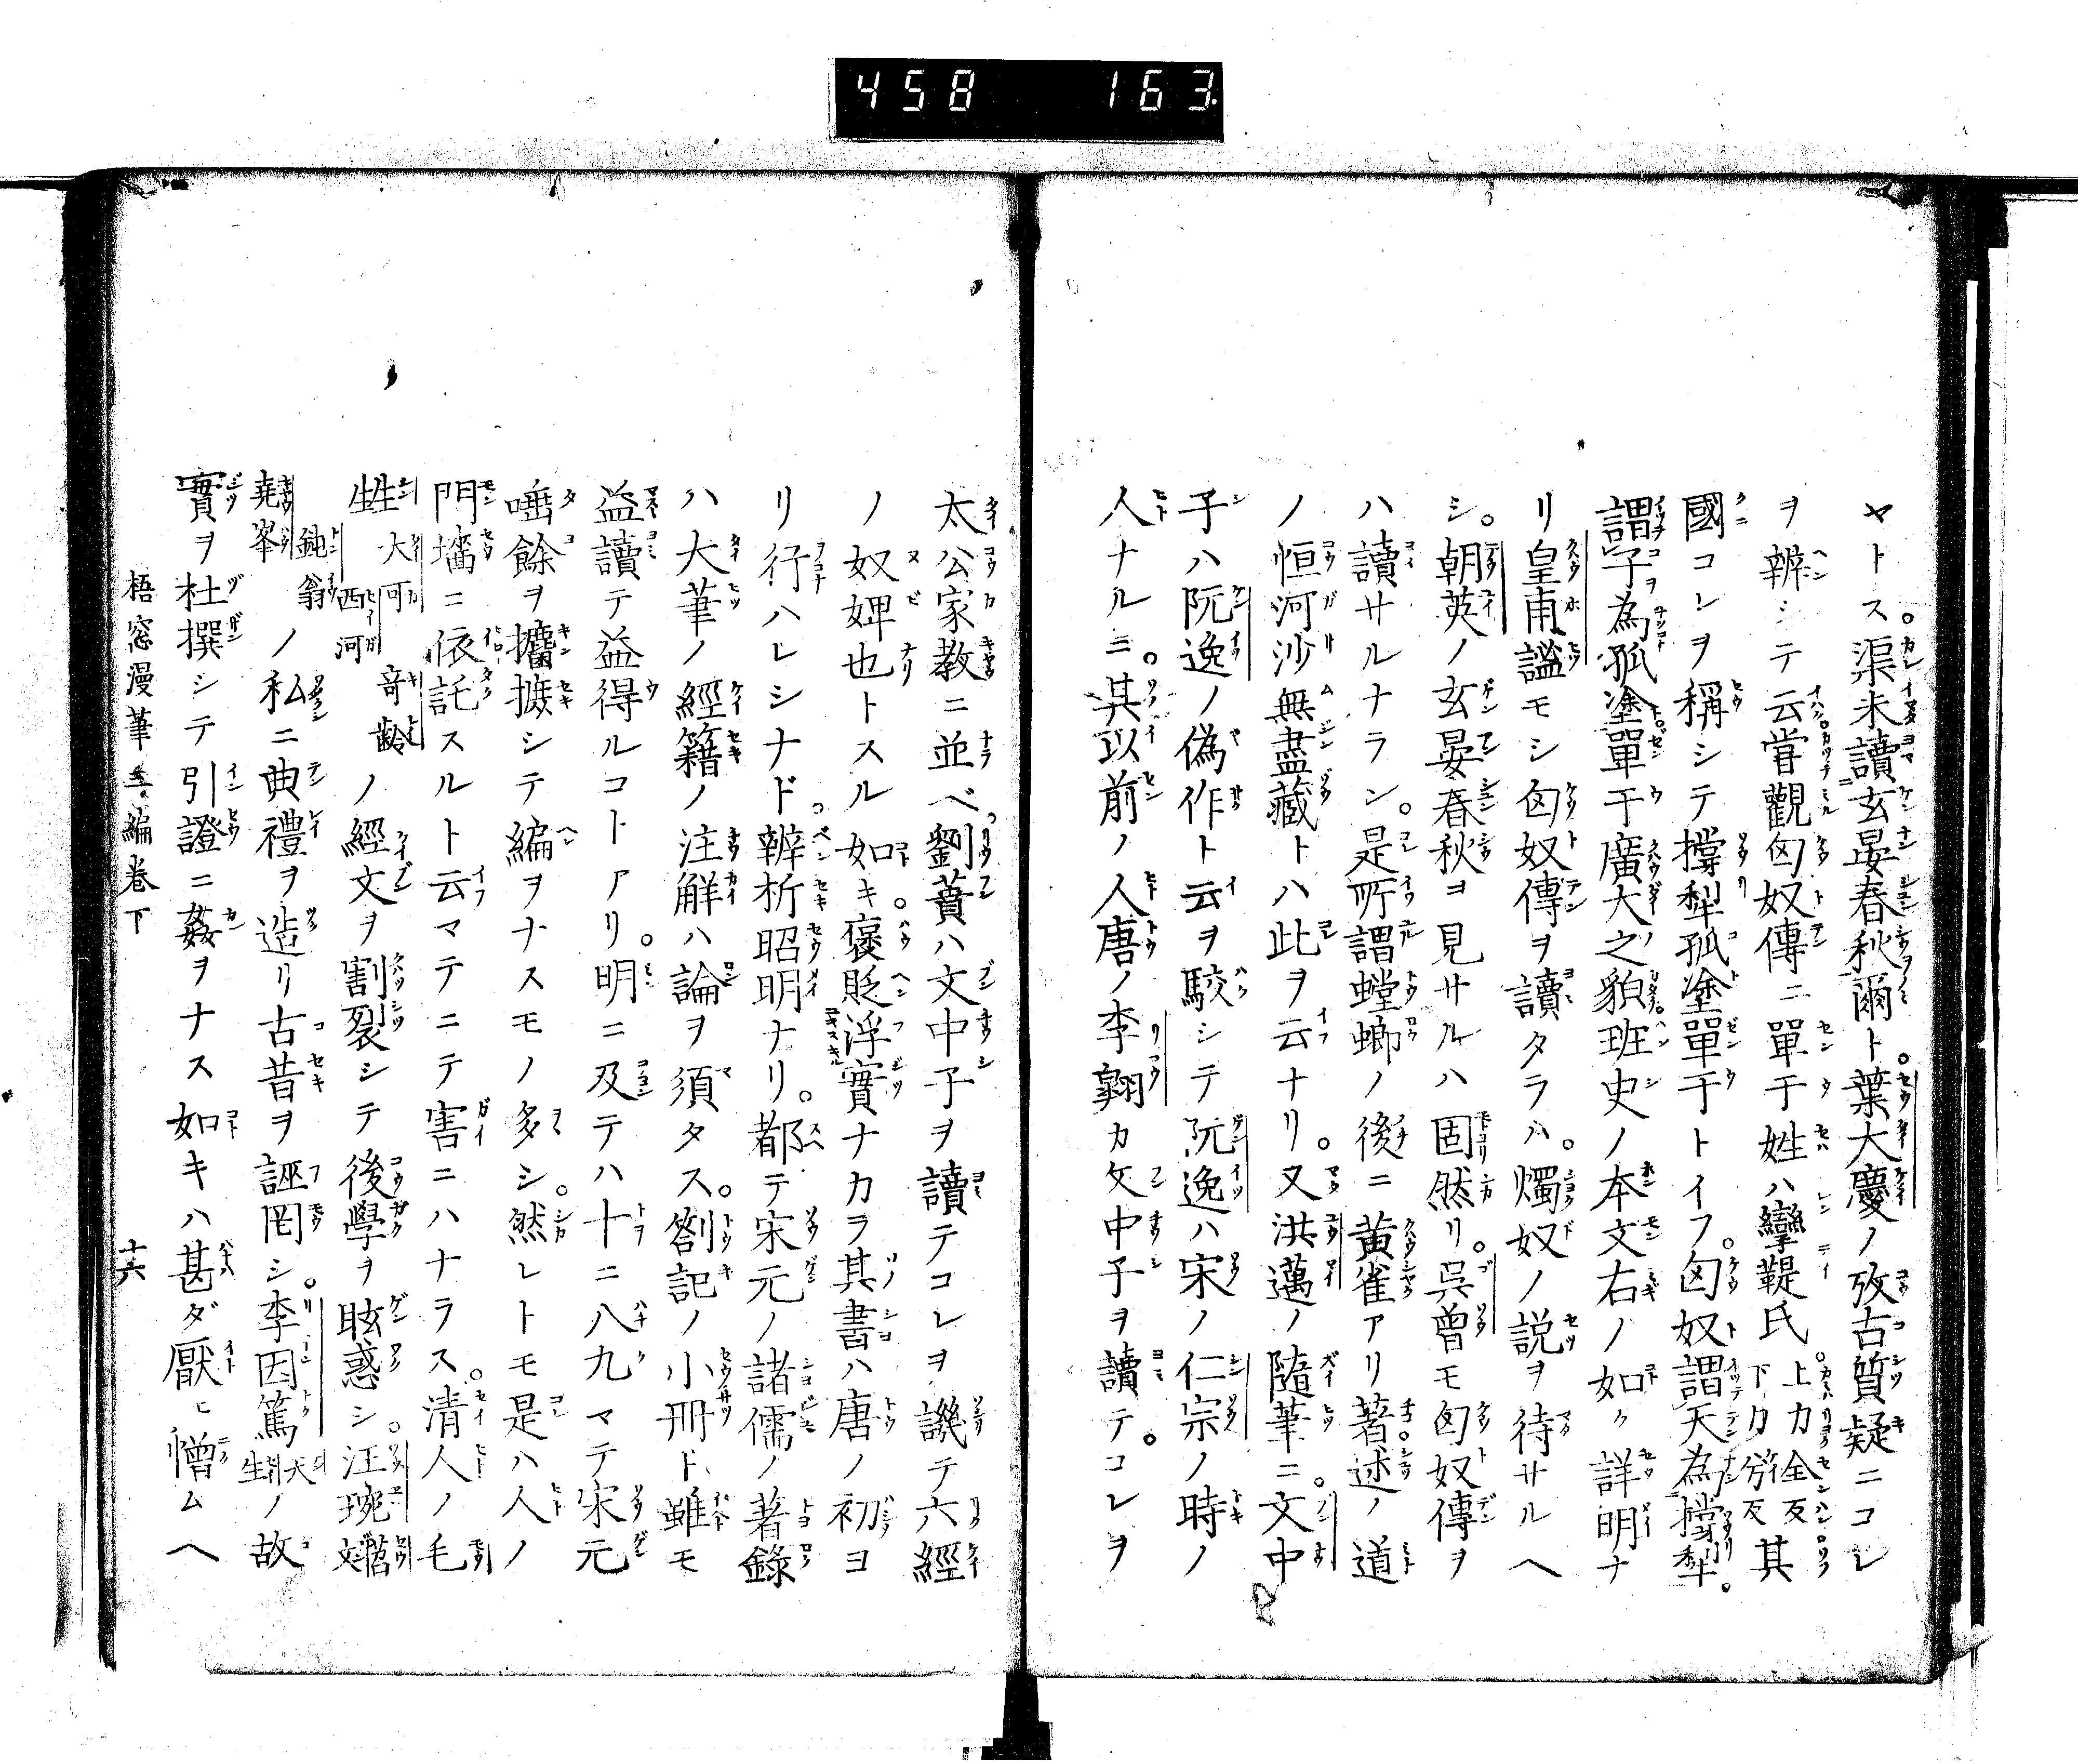 458 163
ヤトス。渠未讀玄晏春秋爾ト。葉大慶ノ攷古質疑ニコレ
ヲ辨シテ云。甞觀匈奴傳ニ單于姓ハ攣鞮氏。上力全反下力兮反其
國コレヲ稱シテ撐犁孤塗單于トイフ。匈奴謂天為撐犁。
謂子為孤塗單于廣大之貌。班史ノ本文右ノ如ク詳明ナ
リ皇甫謐モシ匈奴傳ヲ讀タラハ。燭奴ノ説ヲ待サルヘ
シ。朝英ノ玄晏春秋ヨ見サルハ固然リ。呉曾モ匈奴傳ヲ
ハ讀サルナラン。是所謂螳螂ノ後ニ黄雀アリ著述ノ道
ノ恒河沙無盡藏トハ此ヲ云ナリ。又洪邁ノ隨筆ニ。文中
子ハ阮逸ノ偽作ト云ヲ駮シテ阮逸ハ宋ノ仁宗ノ時ノ
人ナルニ。其以前ノ人唐ノ李翺カ文中子ヲ讀テ。コレヲ
太公家教ニ並ベ。劉蕡ハ文中子ヲ讀テコレヲ譏テ六經
ノ奴婢也トスル如キ。褒貶浮實ナカラ其書ハ唐ノ初ヨ
リ行ハレシナド。辨析昭明ナリ。都テ宋元ノ諸儒ノ著錄
ハ大筆ノ經籍ノ注解ハ論ヲ須タス。劄記ノ小冊ト雖モ
益讀テ益得ルコトアリ。明ニ及テハ十ニ八九マテ宋元
唾餘ヲ攟摭シテ編ヲナスモノ多シ。然レトモ是ハ人ノ
門墻ニ依託スルト云マテニテ害ニハナラス。清人ノ毛
甡大可西河竒齡ノ經文ヲ割裂シテ後學ヲ眩惑シ。汪琬苕文
鈍翁堯峯ノ私ニ典禮ヲ造リ古昔ヲ誣罔シ。李因篤天生ノ故
實ヲ杜撰シテ引證ニ姦ヲナス如キハ甚ダ厭ヒ憎ムヘ
梧窓漫筆三編卷下 十六